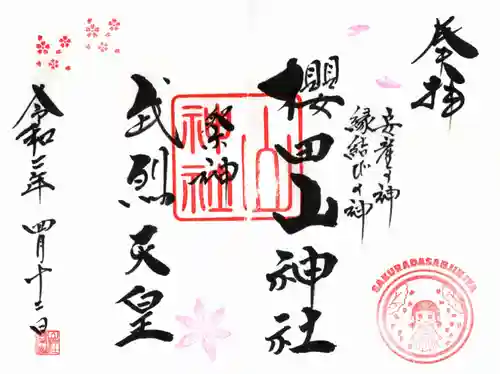 奉拝
安産の神
縁結びの神
櫻田山神社
祭神
武烈天皇
令和二年 四月十二日
SAKURADASANJINJYA